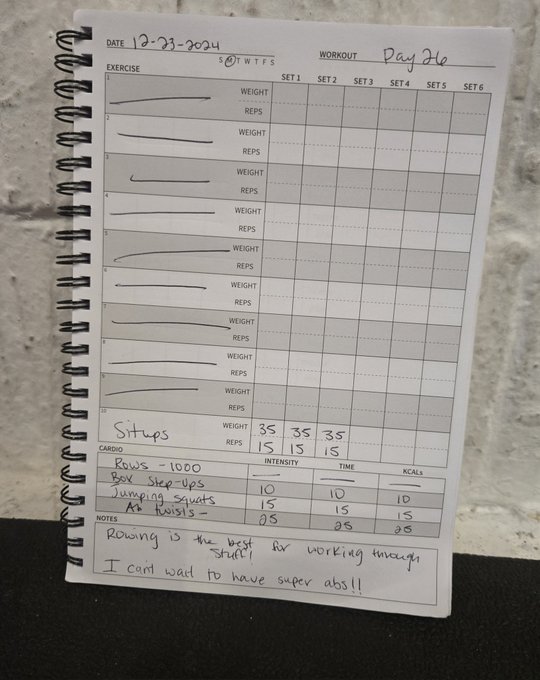 DATE 12-23-2024
S M T W T F S
WORKOUT Day 26
EXERCISE SET 1 SET 2 SET 3 SET 4 SET 5 SET 6
1 WEIGHT
REPS
2 WEIGHT
REPS
3 WEIGHT
REPS
4 WEIGHT
REPS
5 WEIGHT
REPS
6 WEIGHT
REPS
7 WEIGHT
REPS
8 WEIGHT
REPS
9 WEIGHT
REPS
10 Situps WEIGHT 35 35 35
REPS 15 15 15
CARDIO INTENSITY TIME KCALs
Rows - 1000
Box Step-Ups 10 10 10
Jumping squats 15 15 15
Ab twists - 25 25 25
NOTES
Rowing is the best for working through
stuff!
I cant wait to have super abs!!